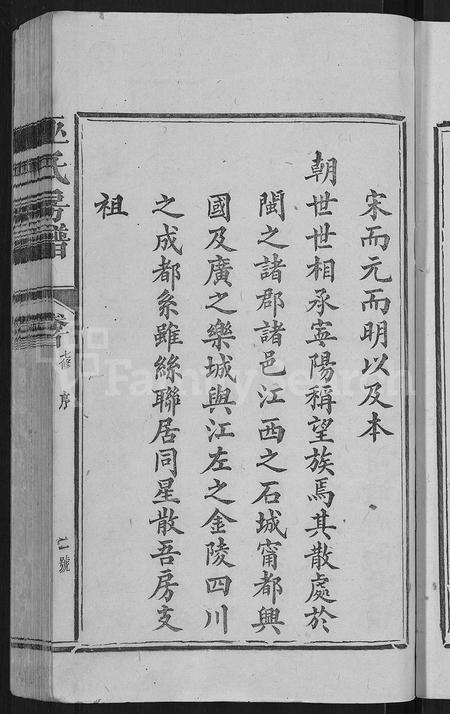 宋而元而明以及本
朝世世相承寍陽稱望族焉其散處於
閩之諸郡諸邑江西之石城甯都興
國及廣之樂城與江左之金陵四川
之成都系雖絲聯居同星散吾房支
祖
巫氏房譜
序
二號
FamilySearch